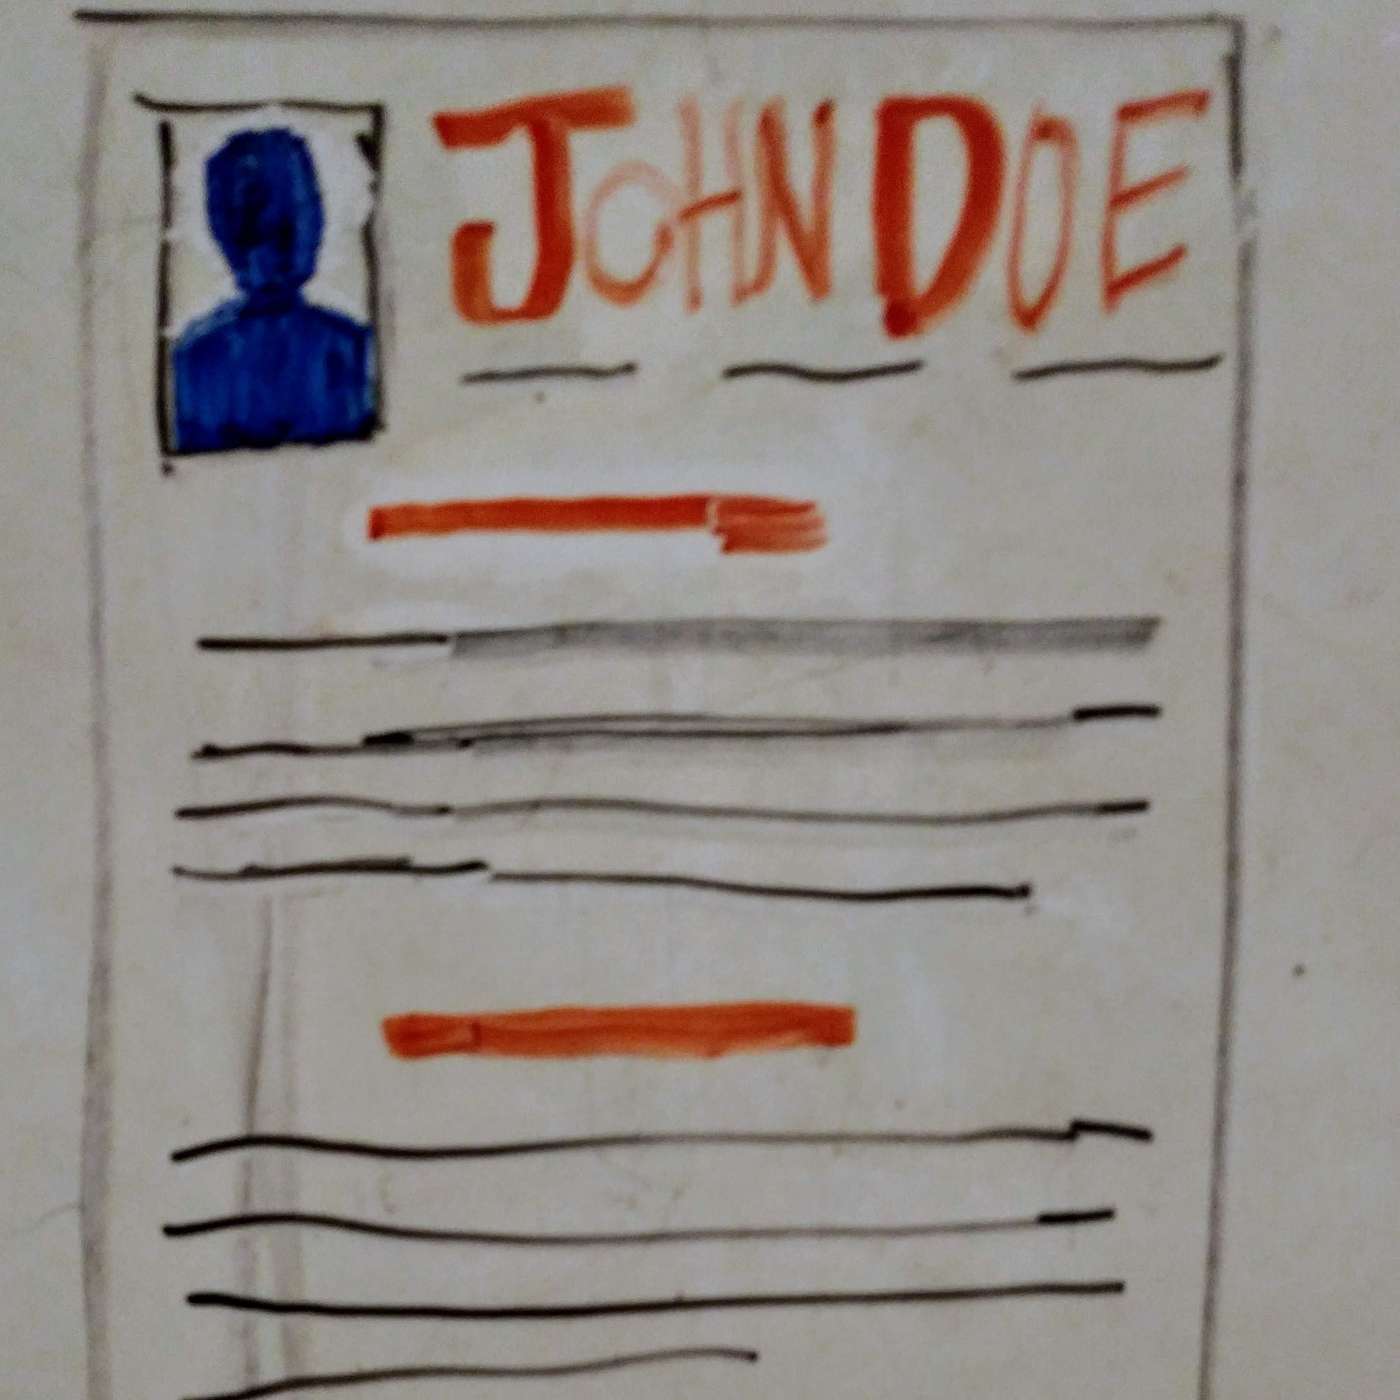 JOHN DOE